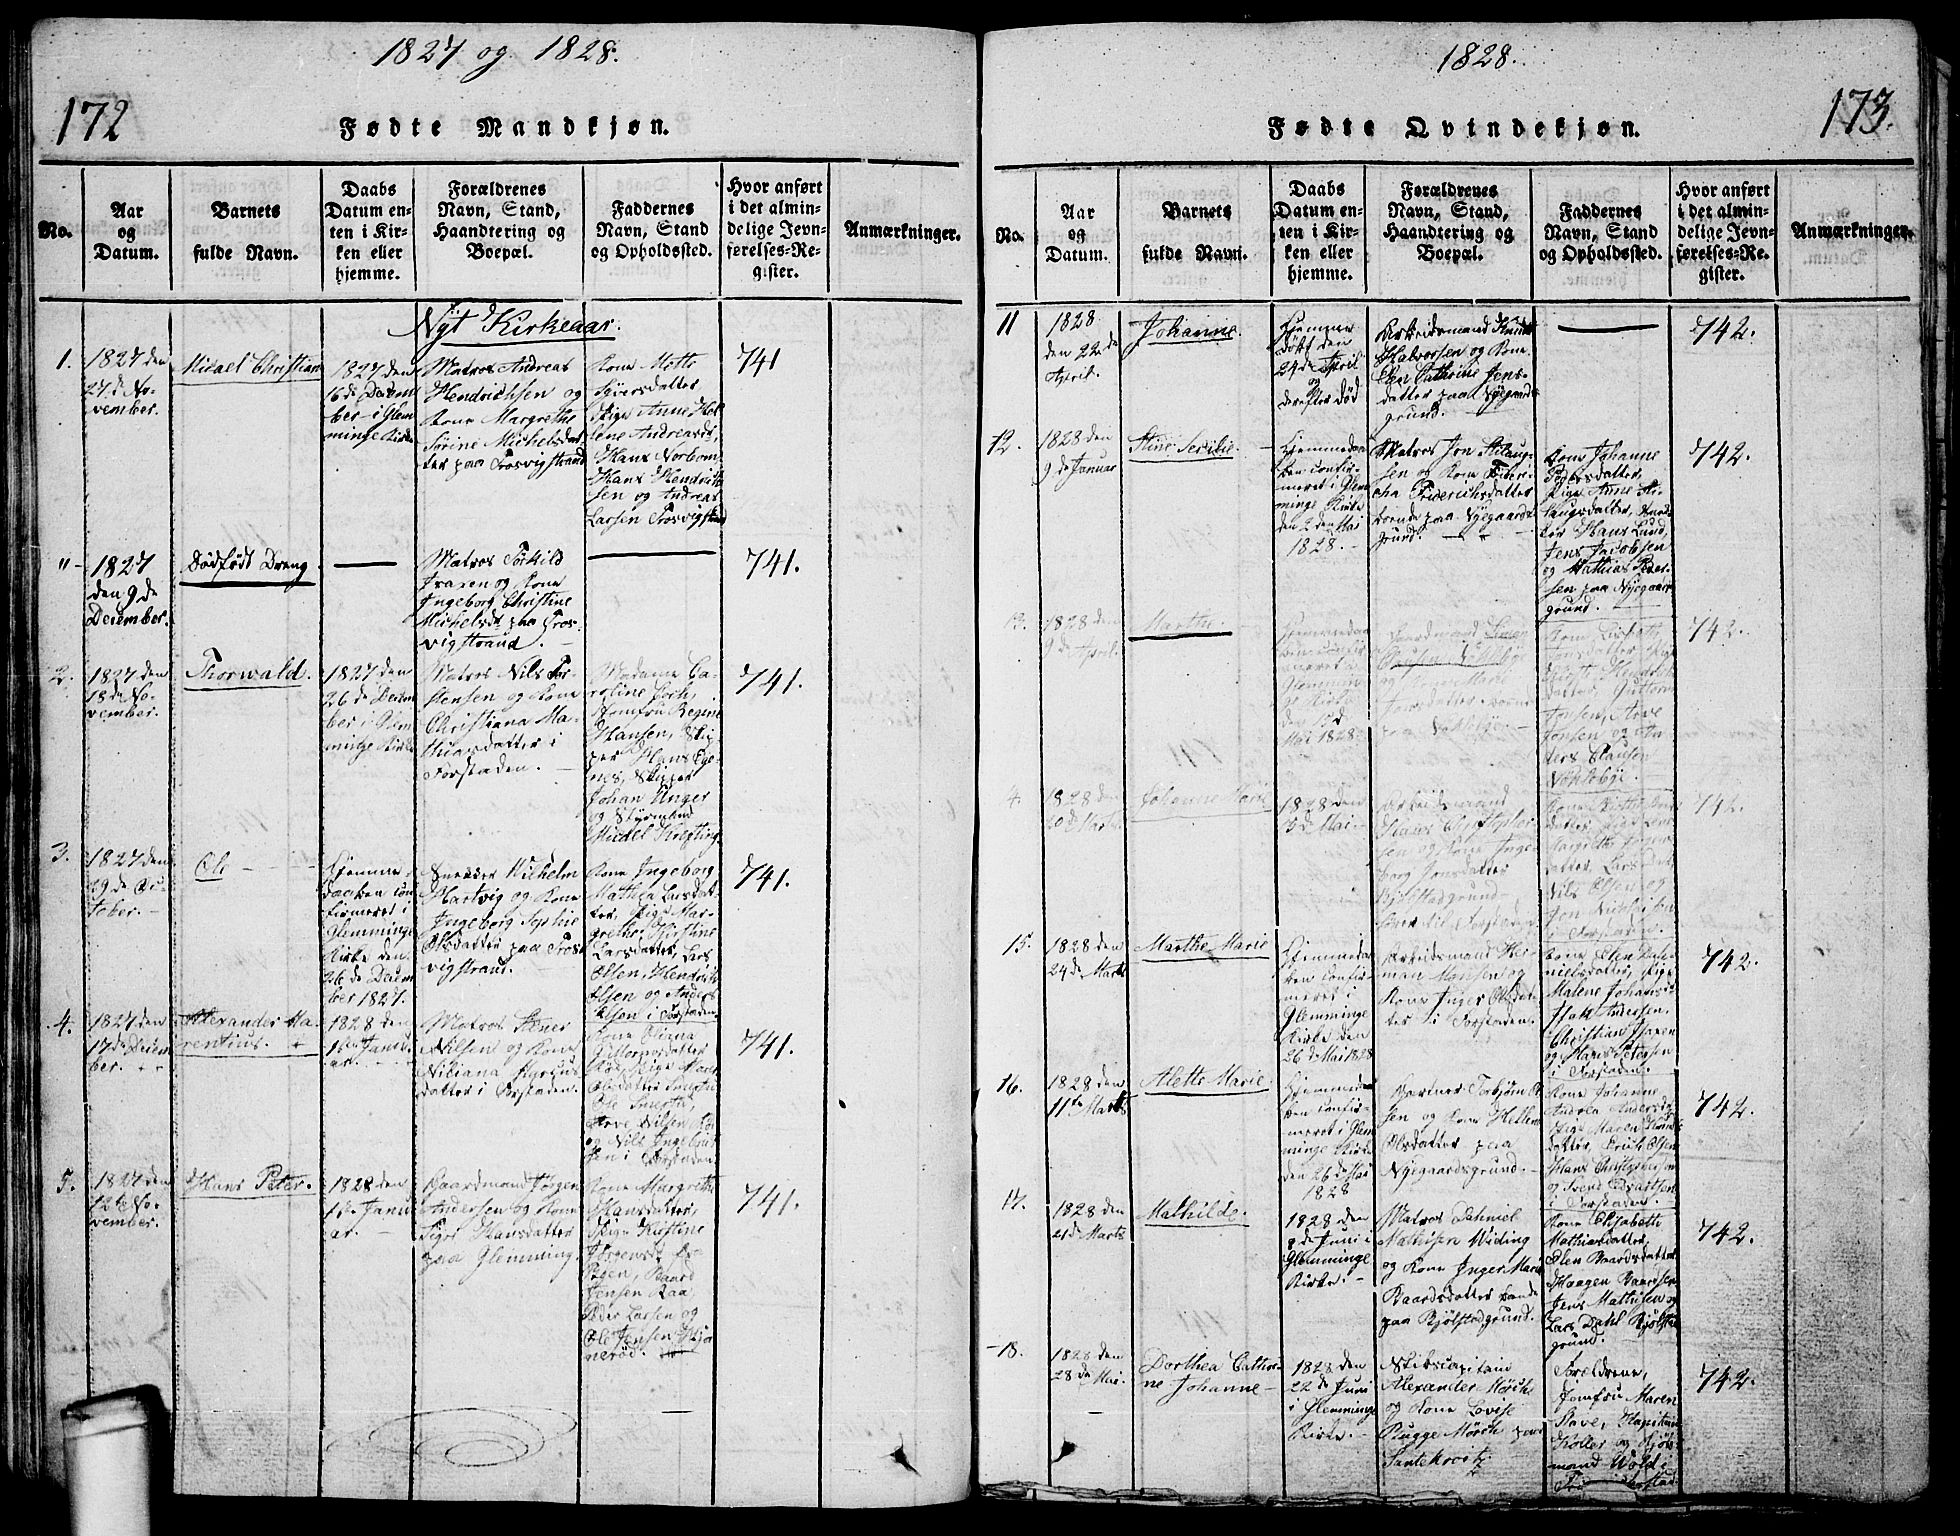 1827 og 1828.
172
Fødte Mandkjøn.
No.
Aar
og
Datum.
Barnets
fulde Navn.
Daabs
Datum en-
ten i Kir-
ken eller
hjemme.
Forældrenes
Navn, Stand,
Haandtering og
Boepæl.
Faddernes
Navn, Stand
og Opholdssted.
Hvor anført
i det almin-
delige Jevn-
førelses-Re-
gister.
Anmærkninger.
Nyt Kirkeaar.
1.
1827 den
27de No-
vember.
Micael Christian
1827 den
16de Decem
ber i Glem
minge Kirke
Matros Andreas
Hendrichsen og
Kone Margrethe
Sørine Michelsdat
ter paa Trosvigstrand
Kone Mette
Syversdatter
Pige Anne Hel
lene Andreasdr,
Hans Norbom,
Hans Hendrich
sen og Andreas
Larsen Trosvigstrand
741
"-
1827
den 9de
December.
Dødfødt Dreng
Matros Torkild
Ingeborg Christine
Michelsdr paa Tros
vigstrand.
741.
2.
1827 den
18de No-
vember.
Thorwald.
1827 den
26de Decem
ber i Glem
minge Kirke
Matros Nils Tor
stensen og Kone
Christiana Ma-
thiasdatter i
Forstaden.
Madame Ca-
roline
Jomfru Regine
Hansen, Skip
per Hans Ege
nes, Skipper
Johan Unger
og Styrmand
Micael Krefting.
741.
3.
1827 den
29de Oc-
tober.
Ole
Hjemme-
daaben con
firmeret i
Glemminge
Kirke den
26de Decem
ber 1827.
Snedker Wilhelm
Hartvig og Kone
Ingeborg Sophie
Olsdatter paa Tros
vigstrand.
Kone Ingeborg
Mathea Larsdat
ter, Pige Mar-
grethe Kirstine
Larsdatter, Lars
Olsen, Hendrich
Olsen og Anders
Olsen i Forstaden.
741.
4.
1827 den
17de Decem
ber.
Alexander Ma-
rentius.
1828 den
1ste Janu
ar.
Matros Stener
Nilsen og Kone
datter i Forstaden.
Kone Oliana
Guttormsdatter
Ole
Arve Nilsen
og Nils Ingebret
sen i Forstaden
741.
5.
1827 den
12te No-
vember.
Hans Peter.
1828 den
1ste Janu
ar.
Gaardmand Jørgen
Andersen og Kone
Siger Hansdatter
paa Glemming.
Kone Margrethe
Hansdatter,
Pige Kirstine
Jørgensdr
Baard
Jensen Raa,
Peder Larsen og
Ole Jensen Kjør
nerød.
741.
1828.
173.
Fødte Qvindekjøn.
No.
Aar
og
Datum.
Barnets
fulde Navn.
Daabs
Datum en-
ten i Kir-
ken eller
hjemme.
Forældrenes
Navn, Stand,
Haandtering og
Boepæl.
Faddernes
Navn, Stand
og Opholdssted.
Hvor anført
i det almin-
delige Jevn-
førelses-Re-
gister.
Anmærkninger.
11
1828
den 22de
April.
Johanne.
Hjemme
døbt den
24de April
og
derefter død
Arbeidsmand Knud
Halvorsen og Kone
Elen Cathrine Jens-
datter paa Nyegaards
grund.
742.
12.
1828 den
9de Januar
Stine Secilie.
Hjemmedaa
ben confir-
meret i Glem
minge Kirke
den 2den Mai
1828.
Matros Jon Aslaug
sen og Kone Frideri-
cha Friderichsdatter
boende paa Nyegaards
grund.
Kone Johanne
Pedersdatter,
Pige Anne As-
laugsdatter,
Hans Lund,
Jens Jacobsen
og Mathias Peder
sen paa Nyegaards
grund.
742.
13.
1828 den
9de April.
Marthe.
Hjemmedaa
ben confir-
meret i
Glemmin
ge Kirke
den
Mai 1828.
Gaardmand Simen
Clausen
og Kone Marie
Kone Lisbeth
Jonsdatter, Pige
datter, Guttorm
Jensen, Arve
Jonsen og An-
ders Clausen
742.
4.
1828 den
20de Marts.
Johanne Marie
1828 den
Mai
Arbeidsmand
Hans Christopher
sen og Kone Inge-
borg Jonsdatter
Bjølstadgrund
datter, Larsdatter
Nils Olsen og
i Forstaden.
742.
15.
1828 den
24de Marts
Marthe Marie
Hjemmedaa
ben confir-
meret i
Glemminge
Kirke den
26de Mai 1828
Arbeidsmand Her-
man Hansen og
Kone Inger Olsdat
ter i Forstaden.
Kone Elen Da-
nielsdatter, Pige
Malene Johansd
Isak Andersen,
Christian Isaksen
og Hans Petersen
i Forstaden.
742.
16.
1828 den
11te Marts
Alette Marie
Hjemmedaa
ben confir-
meret i Glem
minge Kirke
den 26de Mai
1828
Gartner Torbjørn
sen og Kone Hellene
Olsdatter paa
Nyegaardsgrund.
Kone Johanne
Andrea Andersdr
Pige Maren
datter, Erich Olsen
Hans Christophersen
og Svend Evartsen
i Forstaden.
742.
17.
1828 den
4de Marts
Mathilde.
1828 den
8de Juni i
Glemminge
Kirke.
Matros Dahniel
Mathisen Widing
og Kone Inger Marie
Baardsdatter boende
paa Bjølstadgrund.
Kone Elisabeth
Mathiasdatter,
Elen Baardsdatter
Haagen Baardsen
Jens Mathisen og
Lars Dahl Bjølstad
grund.
742.
18.
1828 den
28de Mai.
Dorthea Cathri-
ne Johanne
1828 den
22de Juni
i Glemminge
Kirke.
Skibscapitain
Alexander Mørch
og Kone Lovise
Rugge Mørch paa
Santekovitz
Foreldrene,
Jomfru Maren
Stave, Kapitain
Køller og Kjøb
mand Wold i
742.